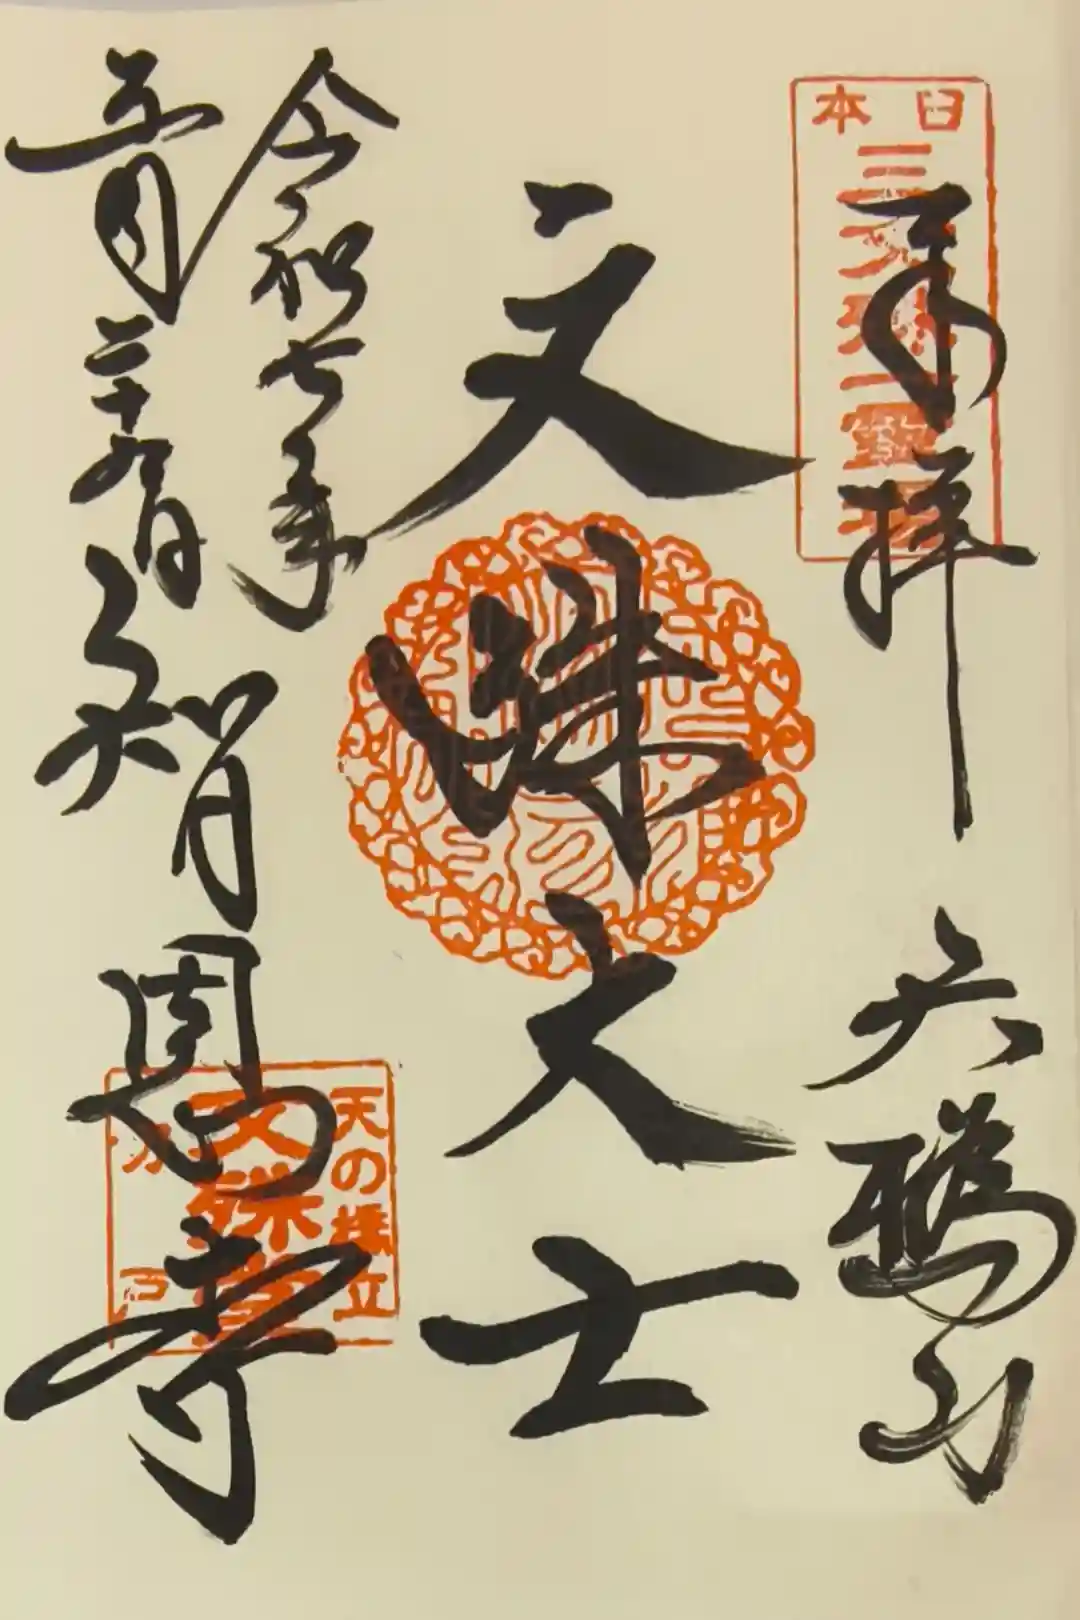 奉拝
天橋山
日本
三文殊第一霊場
文殊大士
令和七年
五月二十九日
智恩寺
天の橋立
文殊堂
切戸